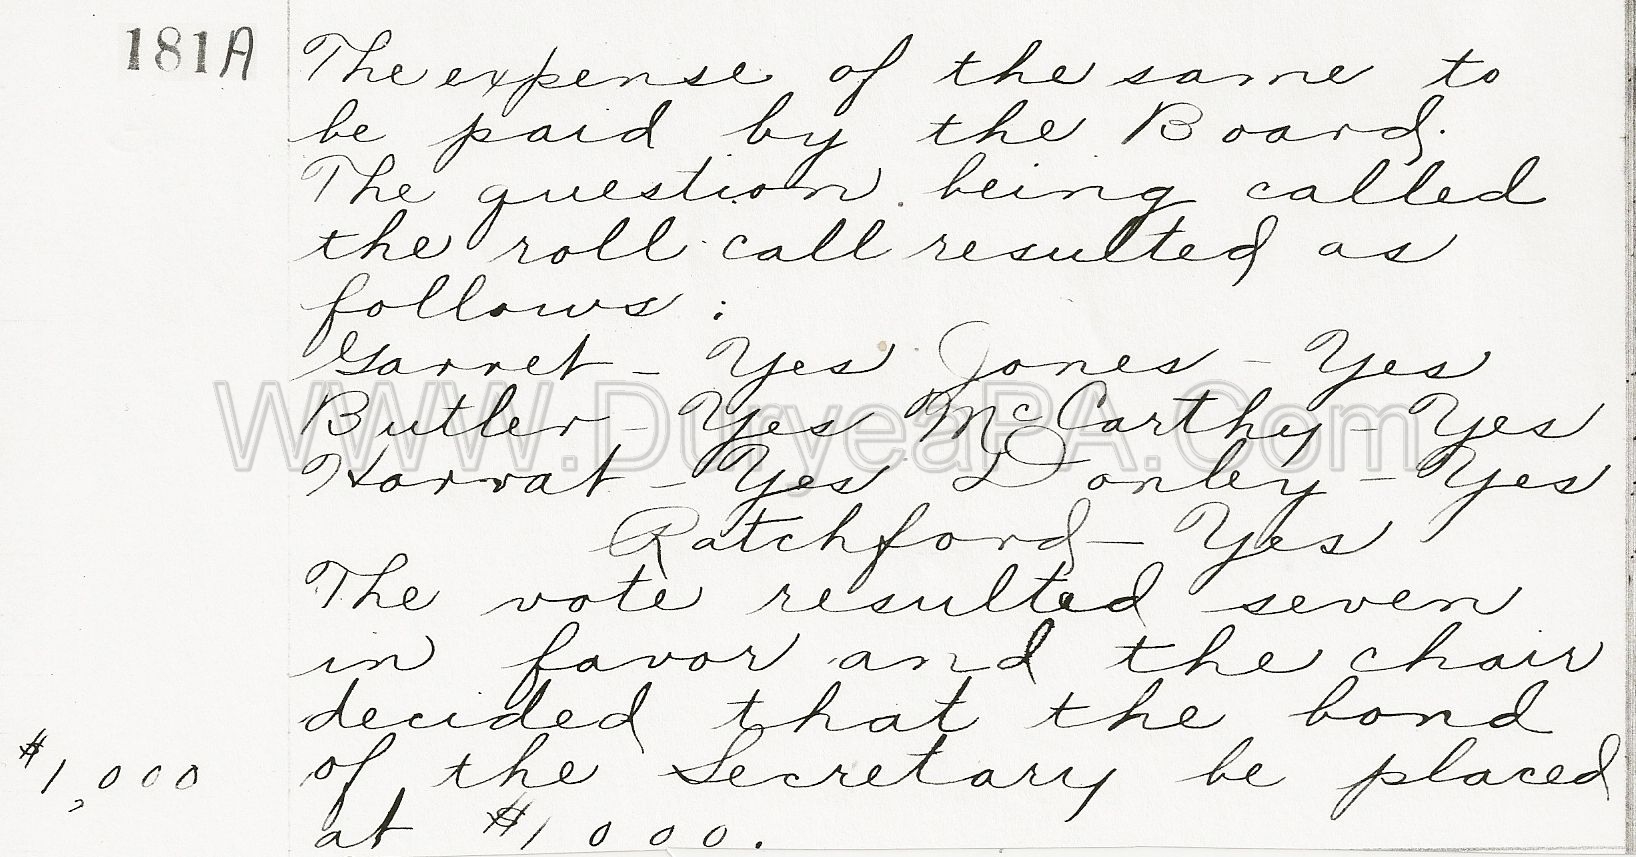 181A
The expense of the same to
be paid by the Board.
The question being called
the roll call resulted as
follows:
Garret - Yes Jones - Yes
Butler - Yes McCarthy - Yes
Harrat - Yes Donley - Yes
Ratchford - Yes
The vote resulted seven
in favor and the chair
decided that the bond
$1,000 of the Secretary be placed
at $1000.
WWW.DuryeaPA.Com